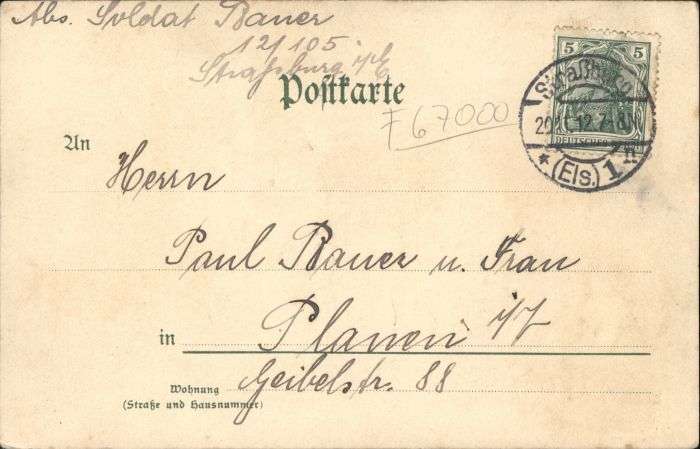 Abs. Soldat Bauer
12/105
Straßburg i/E
Postkarte
F 67000
5 5
DEUTSCHES
Straßburg
12.7-8
* (Els.) 1 n
An
Herrn
Paul Bauer u. Frau
in Plauen i/V
Geibelstr. 88
Wohnung
(Straße und Hausnummer)